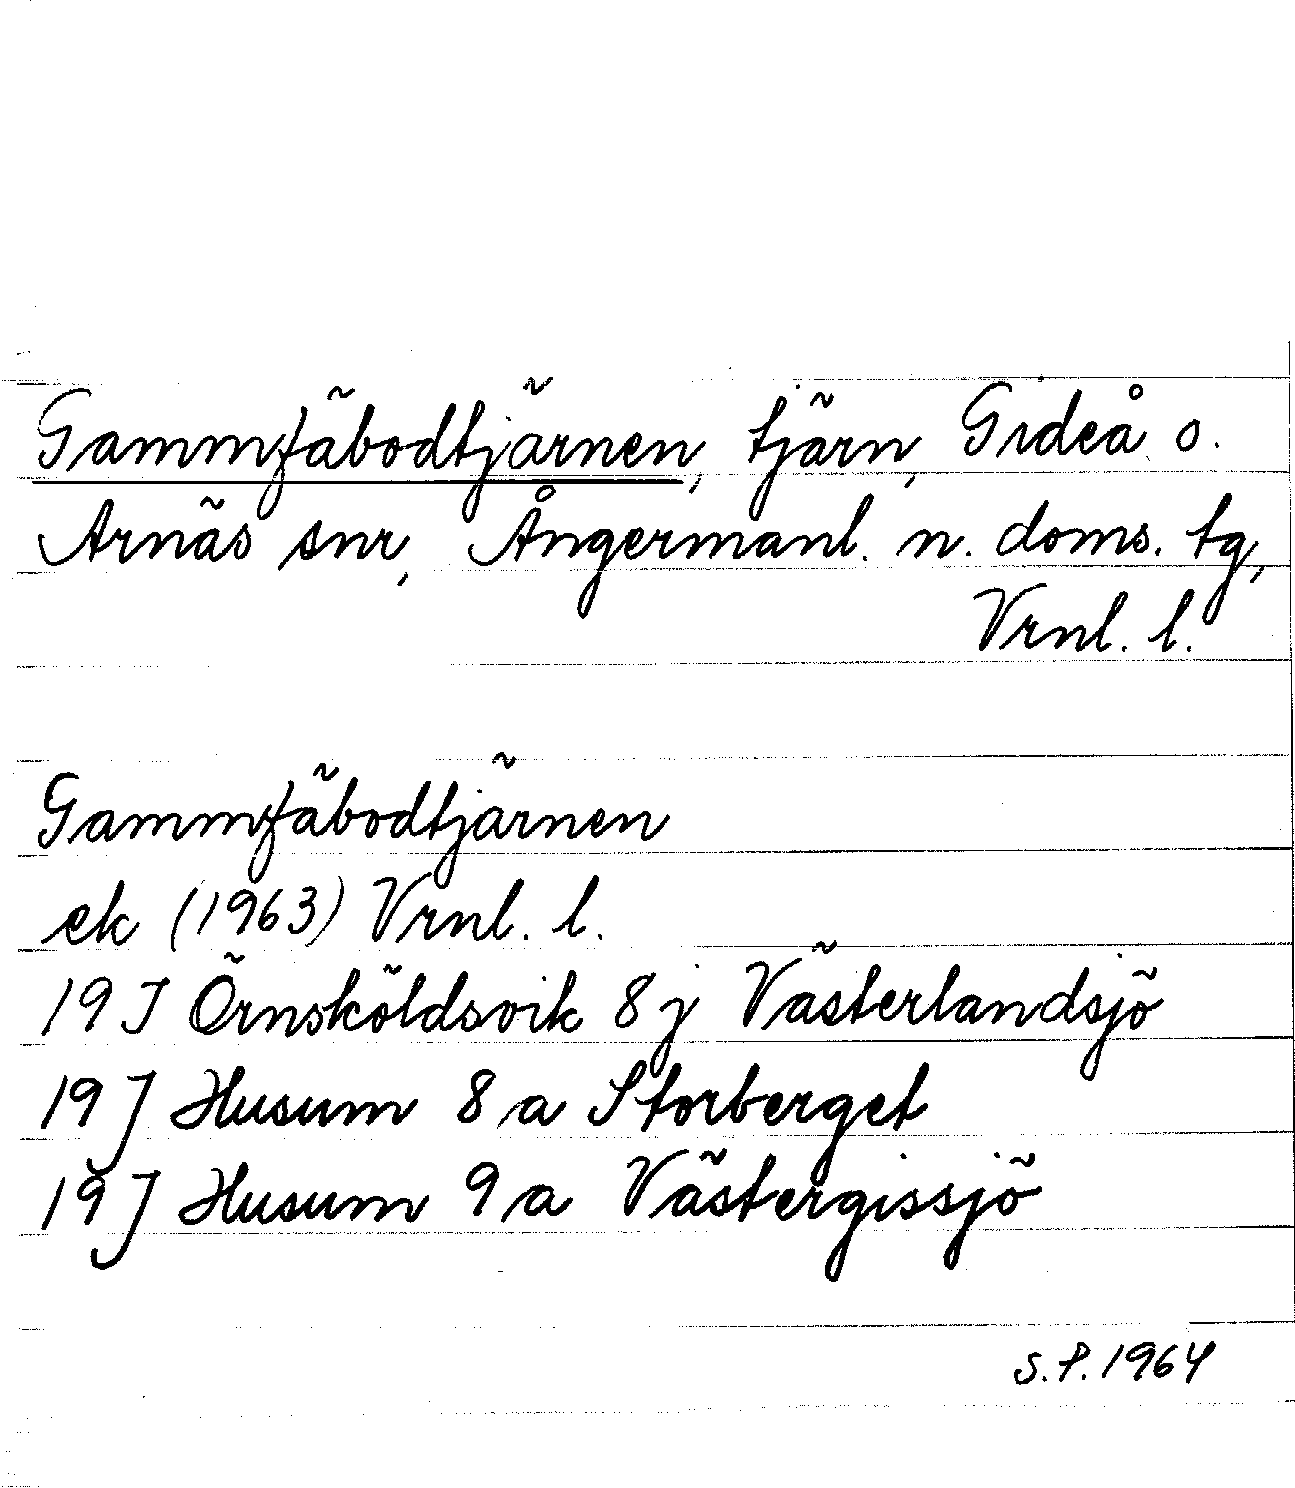 Gammfäbodtjärnen, tjärn, Gideå o.
Arnäs snr, Ångermanl. n. doms. tg,
Vrnl. l.
Gammfäbodtjärnen
ek (1963) Vrnl. l.
19J Örnsköldsvik 8j Västerlandsjö
19J Husum 8a Storberget
19J Husum 9a Västergissjö
S.P. 1964